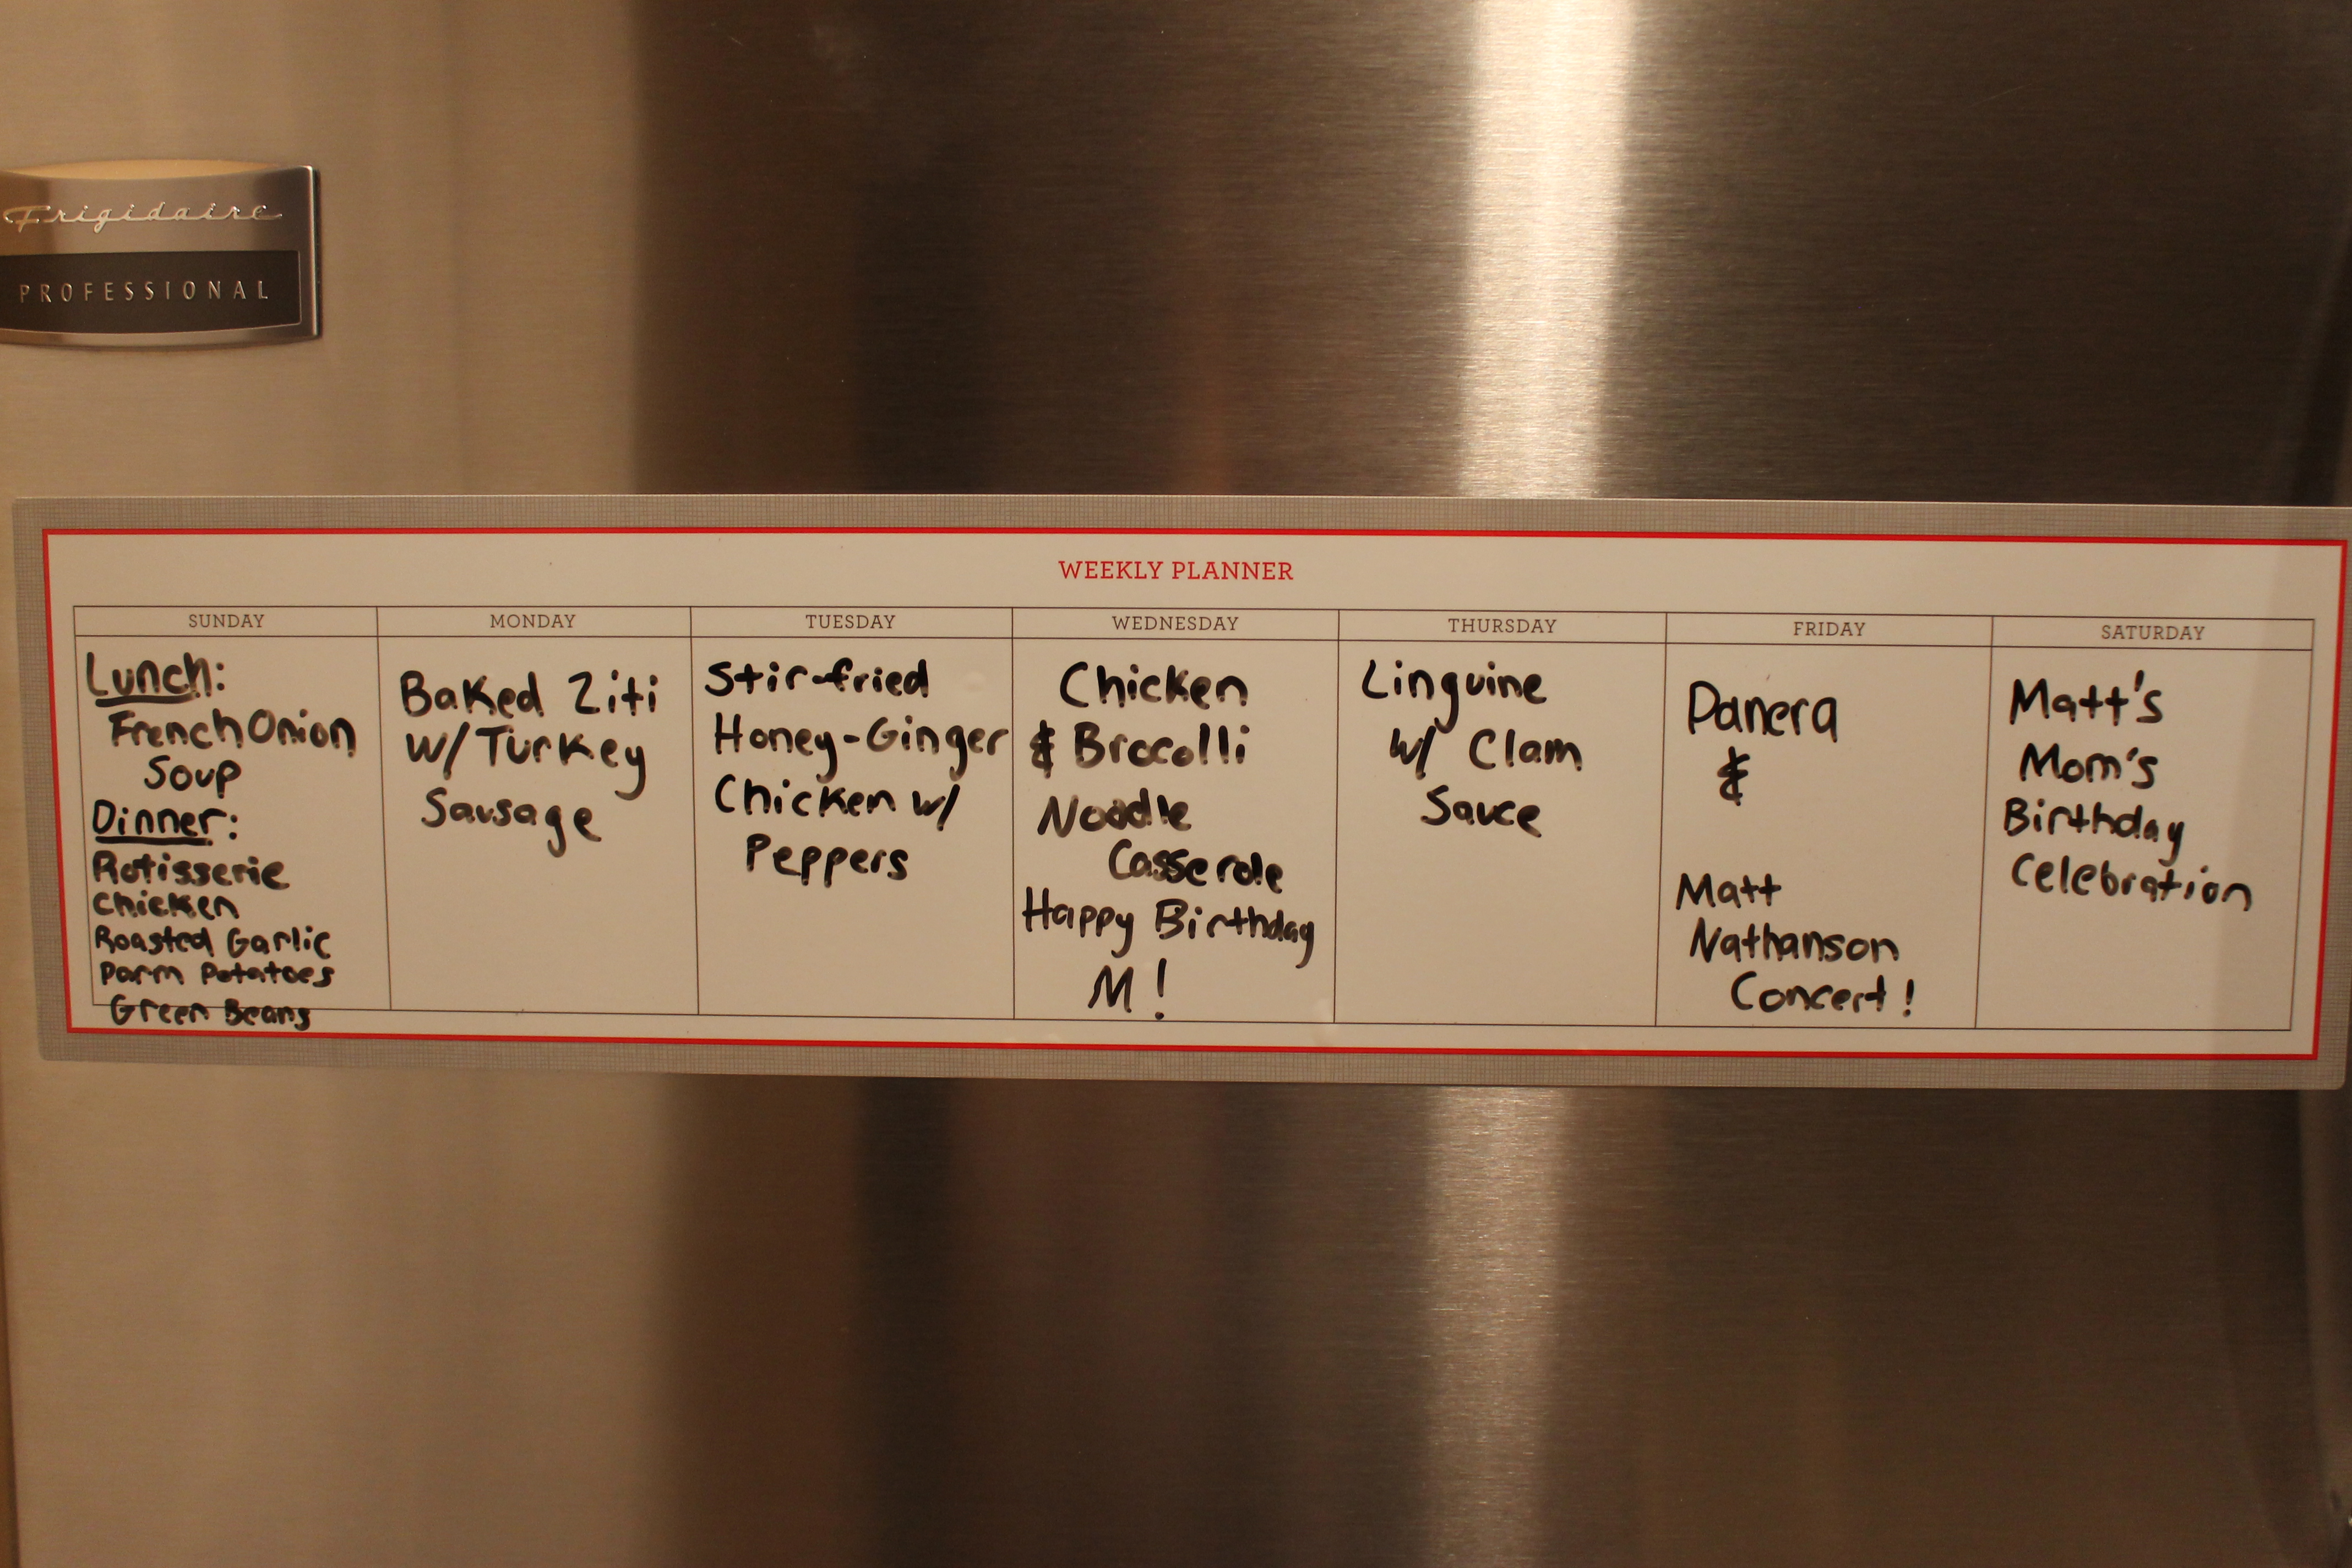 Frigidaire
PROFESSIONAL
WEEKLY PLANNER
SUNDAY
Lunch:
French Onion
Soup
Dinner:
Rotisserie
Chicken
Roasted Garlic
Parm Potatoes
Green Beans
MONDAY
Baked Ziti
w/ Turkey
Sausage
TUESDAY
Stir-fried
Honey-Ginger
Chicken w/
Peppers
WEDNESDAY
Chicken
& Brocolli
Noodle
Casserole
Happy Birthday
M!
THURSDAY
Linguine
w/ Clam
Sauce
FRIDAY
Panera
&
Matt
Nathanson
Concert!
SATURDAY
Matt's
Mom's
Birthday
Celebration